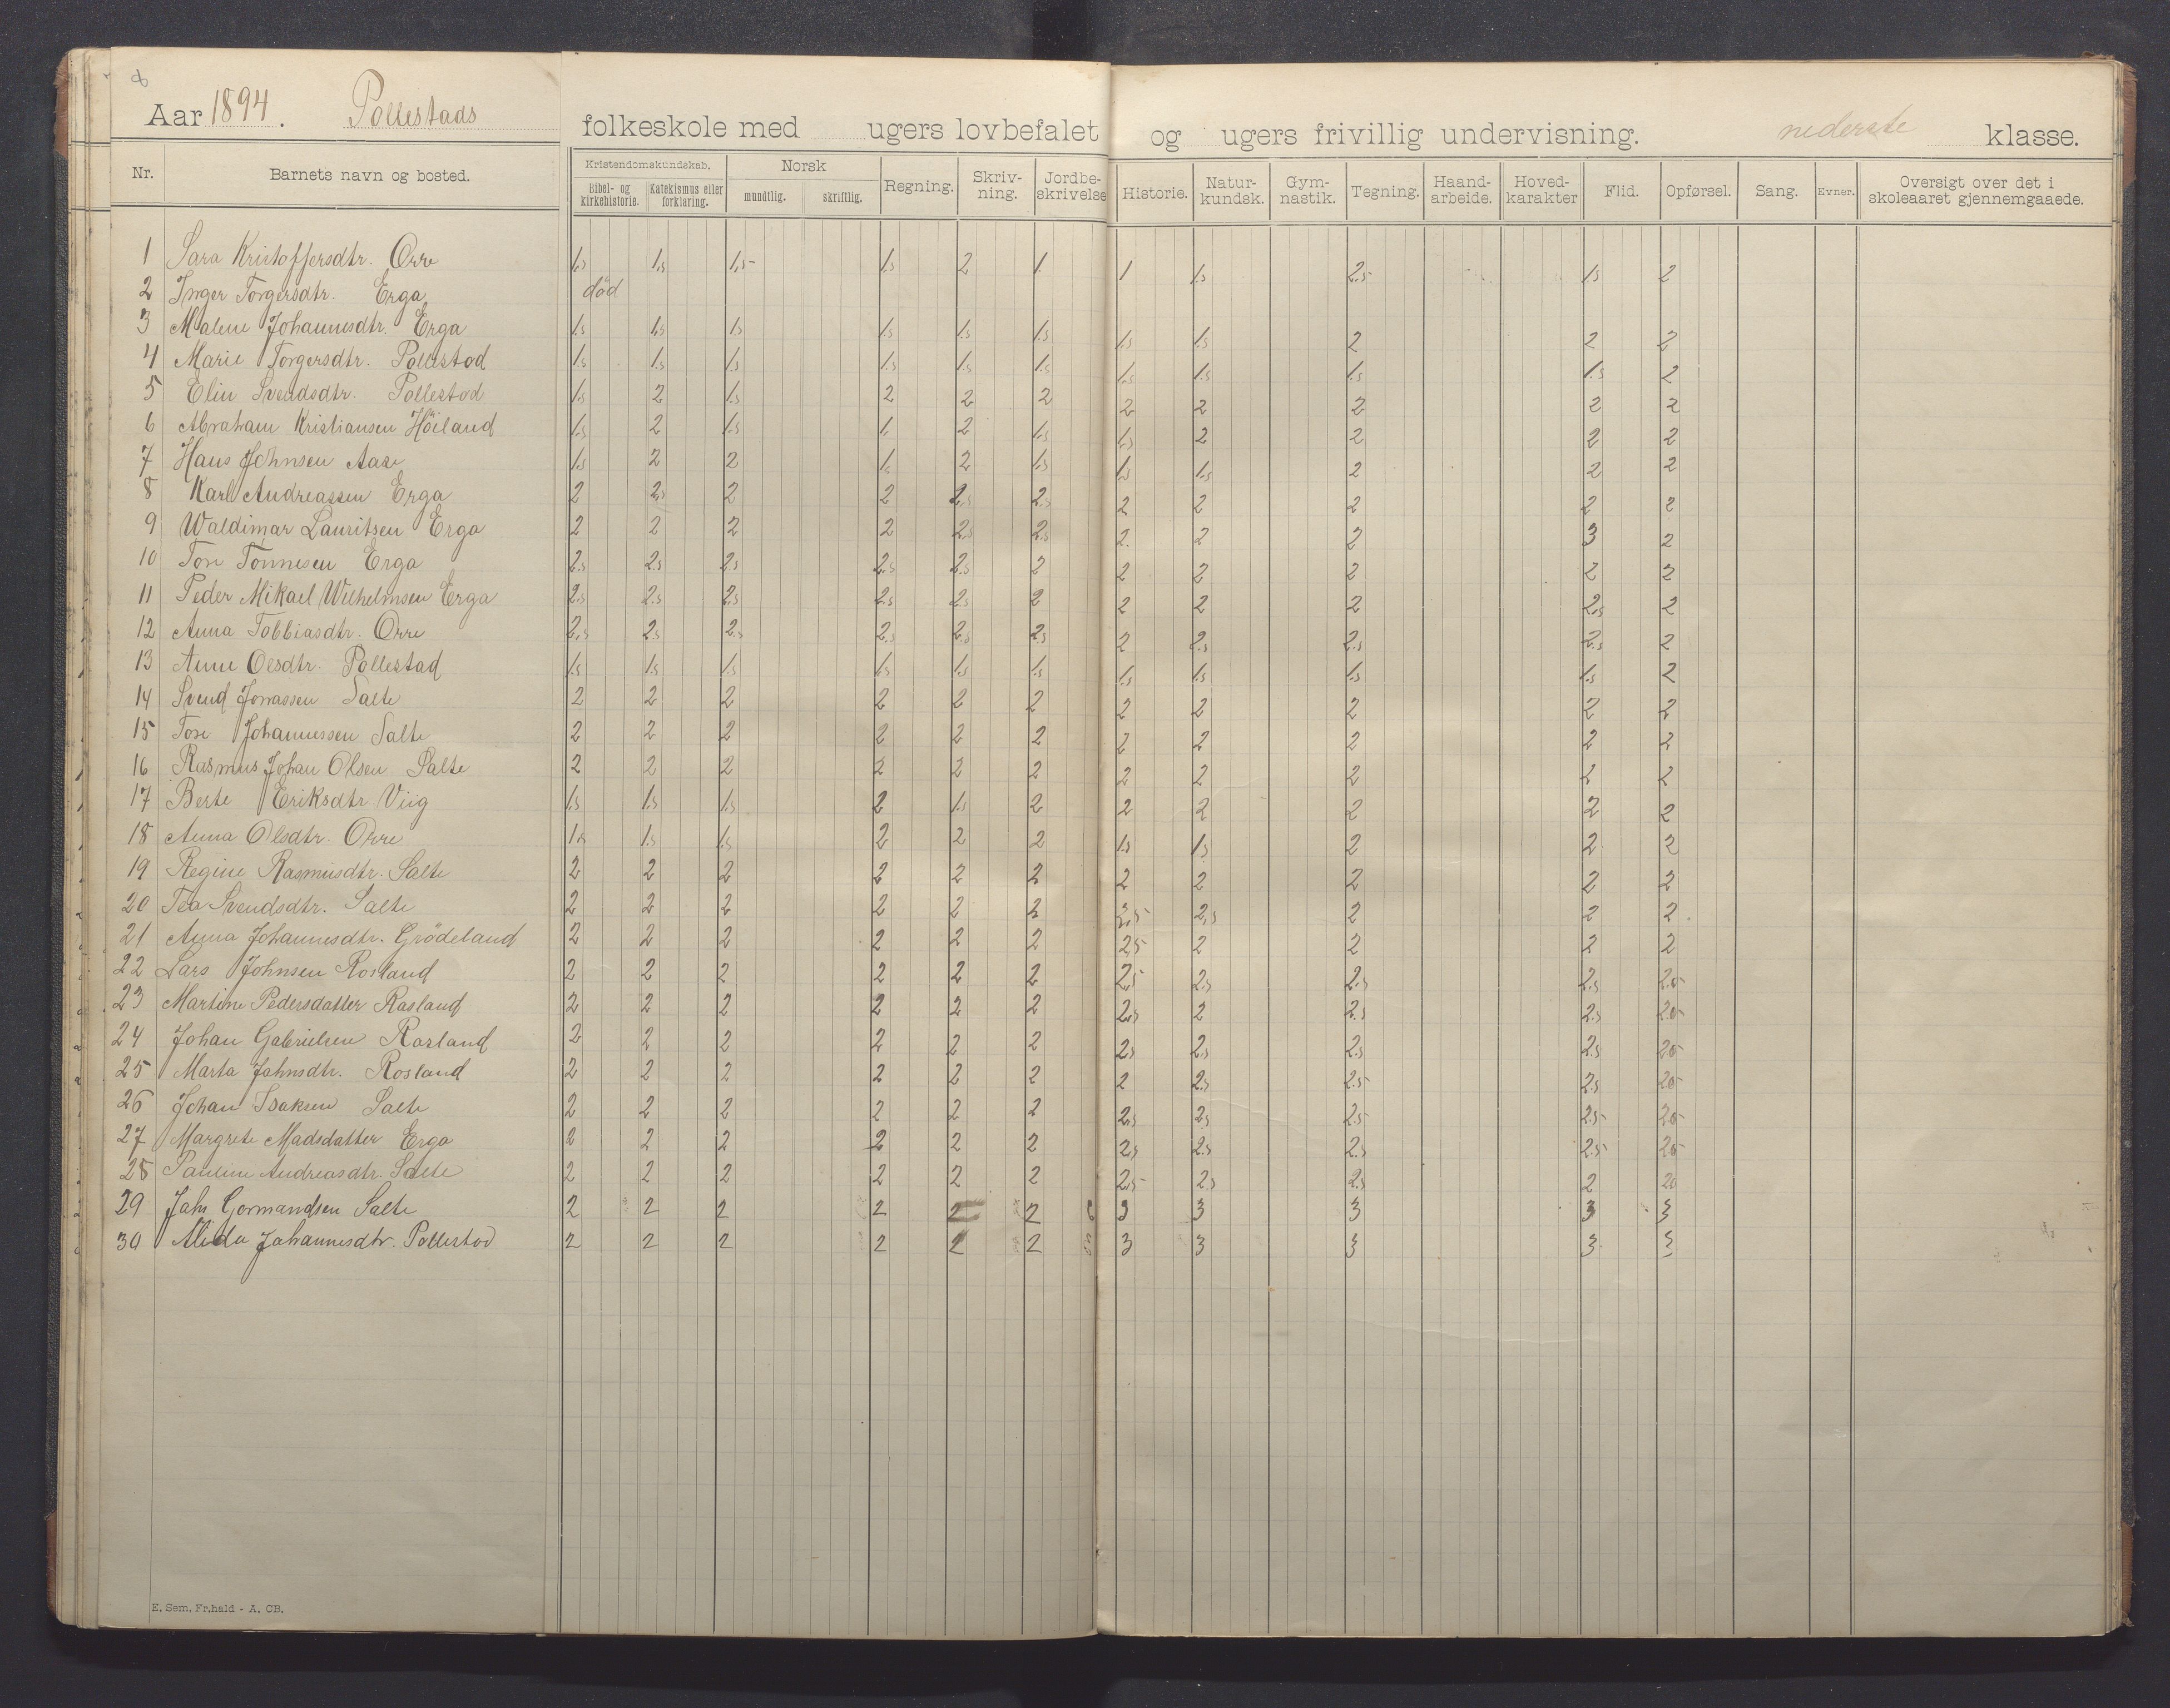 8
Aar 1894. Pollestads folkeskole med ugers lovbefalet og ugers frivillig undervisning. nederste klasse.
Nr. Barnets navn og bosted. Kristendomskundskab. Bibel- og kirkehistorie. Katekismus eller forklaring. Norsk mundtlig. skriftlig. Regning. Skriv-ning. Jordbe-skrivelse Historie. Natur-kundsk. Gym-nastik. Tegning. Haand-arbeide. Hoved-karakter Flid. Opførsel. Sang. Evner. Oversigt over det i skoleaaret gjennemgaaede.
1 Sara Kristoffersdtr. Orre 1.5 1.5 1.5 1.5 2 1 1 1.5 2.5 1.5 2
2 Inger Torgersdtr. Erga död
3 Malene Johannesdtr. Erga 1.5 1.5 1.5 1.5 1.5 1.5 1.5 1.5 2 2 2
4 Marie Torgersdtr. Pollestad 1.5 1.5 1.5 1.5 1.5 1.5 1.5 1.5 1.5 1.5 2
5 Elin Svendsdtr. Pollestad 1.5 2 1.5 2 2 2 2 2 2 2 2
6 Abraham Kristiansen Höiland 1.5 2 1.5 1. 2 1.5 1.5 2 2 2 2
7 Hans Johnsen Aase 1.5 2 2 1. 2 1.5 1.5 1.5 2 2 2
8 Karl Andreassen Erga 2 2.5 2 2 2.5 2.5 2 2 2 2 2
9 Waldimar Lauritsen Erga 2 2 2 2 2.5 2.5 2. 2 2 3 2
10 Tore Tönnesen Erga 2.5 2.5 2.5 2.5 2.5 2 2 2 2 2 2
11 Peder Mikael Wilhelmsen Erga 2.5 2.5 2.5 2.5 2.5 2 2 2 2 2.5 2
12 Anna Tobbiasdtr. Orre 2.5 2.5 2.5 2.5 2.5 2.5 2 2.5 2.5 2.5 2
13 Anne Olsdtr. Pollestad 1.5 1.5 1.5 1.5 1.5 1.5 1.5 1.5 1.5 1.5 2
14 Svend Jonassen Salte 2 2 2 2 2 2 2 2 2 2 2
15 Tore Johannessen Salte 2 2 2 2 2 2 2 2 2 2 2
16 Rasmus Johan Olsen Salte 2 2 2 2 2 2 2 2 2 2 2
17 Berte Eriksdtr Viig 1.5 1.5 1.5 2 1.5 2 2 2 2 2 2
18 Anna Olsdtr. Orre 1.5 1.5 1.5 2 2 2 1.5 1.5 2 2 2
19 Regine Rasmusdtr. Salte 2 2 2 2 2 2 2 2 2 2 2
20 Tea Svendsdtr. Salte 2 2 2 2 2 2 2,5 2,5 2 2 2
21 Anna Johannesdtr. Grödeland 2 2 2 2 2 2 2,5 2 2 2 2
22 Lars Johnsen Rosland 2 2 2 2 2 2 2,5 2.5 2.5 2.5 2.5
23 Martine Pedersdatter Rasland 2 2 2 2 2 2 2.5 2 2.5 2.5 2.5
24 Johan Gabrielsen Rosland 2 2 2 2 2 2 2.5 2.5 2.5 2.5 25
25 Marta Jahnsdtr. Rosland 2 2 2 2 2 2 2 2.5 2.5 2.5 25
26 Johan Isaksen Salte 2 2 2 2 2 2 2.5 2.5 2.5 2.5 25
27 Margrete Madsdatter Erga 2 2 2 2 2 2 2.5 2.5 2.5 2.5 25
28 Pauline Andreasdtr. Salte 2 2 2 2 2 2 2,5 2.5 2.5 2
29 Jahn Gormandsen Salte 2 2 2 2 2 2 3 3 3 3 3
30 Alida Johannesdtr. Pollestad 2 2 2 2 2 2 3 3 3 3 3
E. Sem. Fr.hald - A. CB.